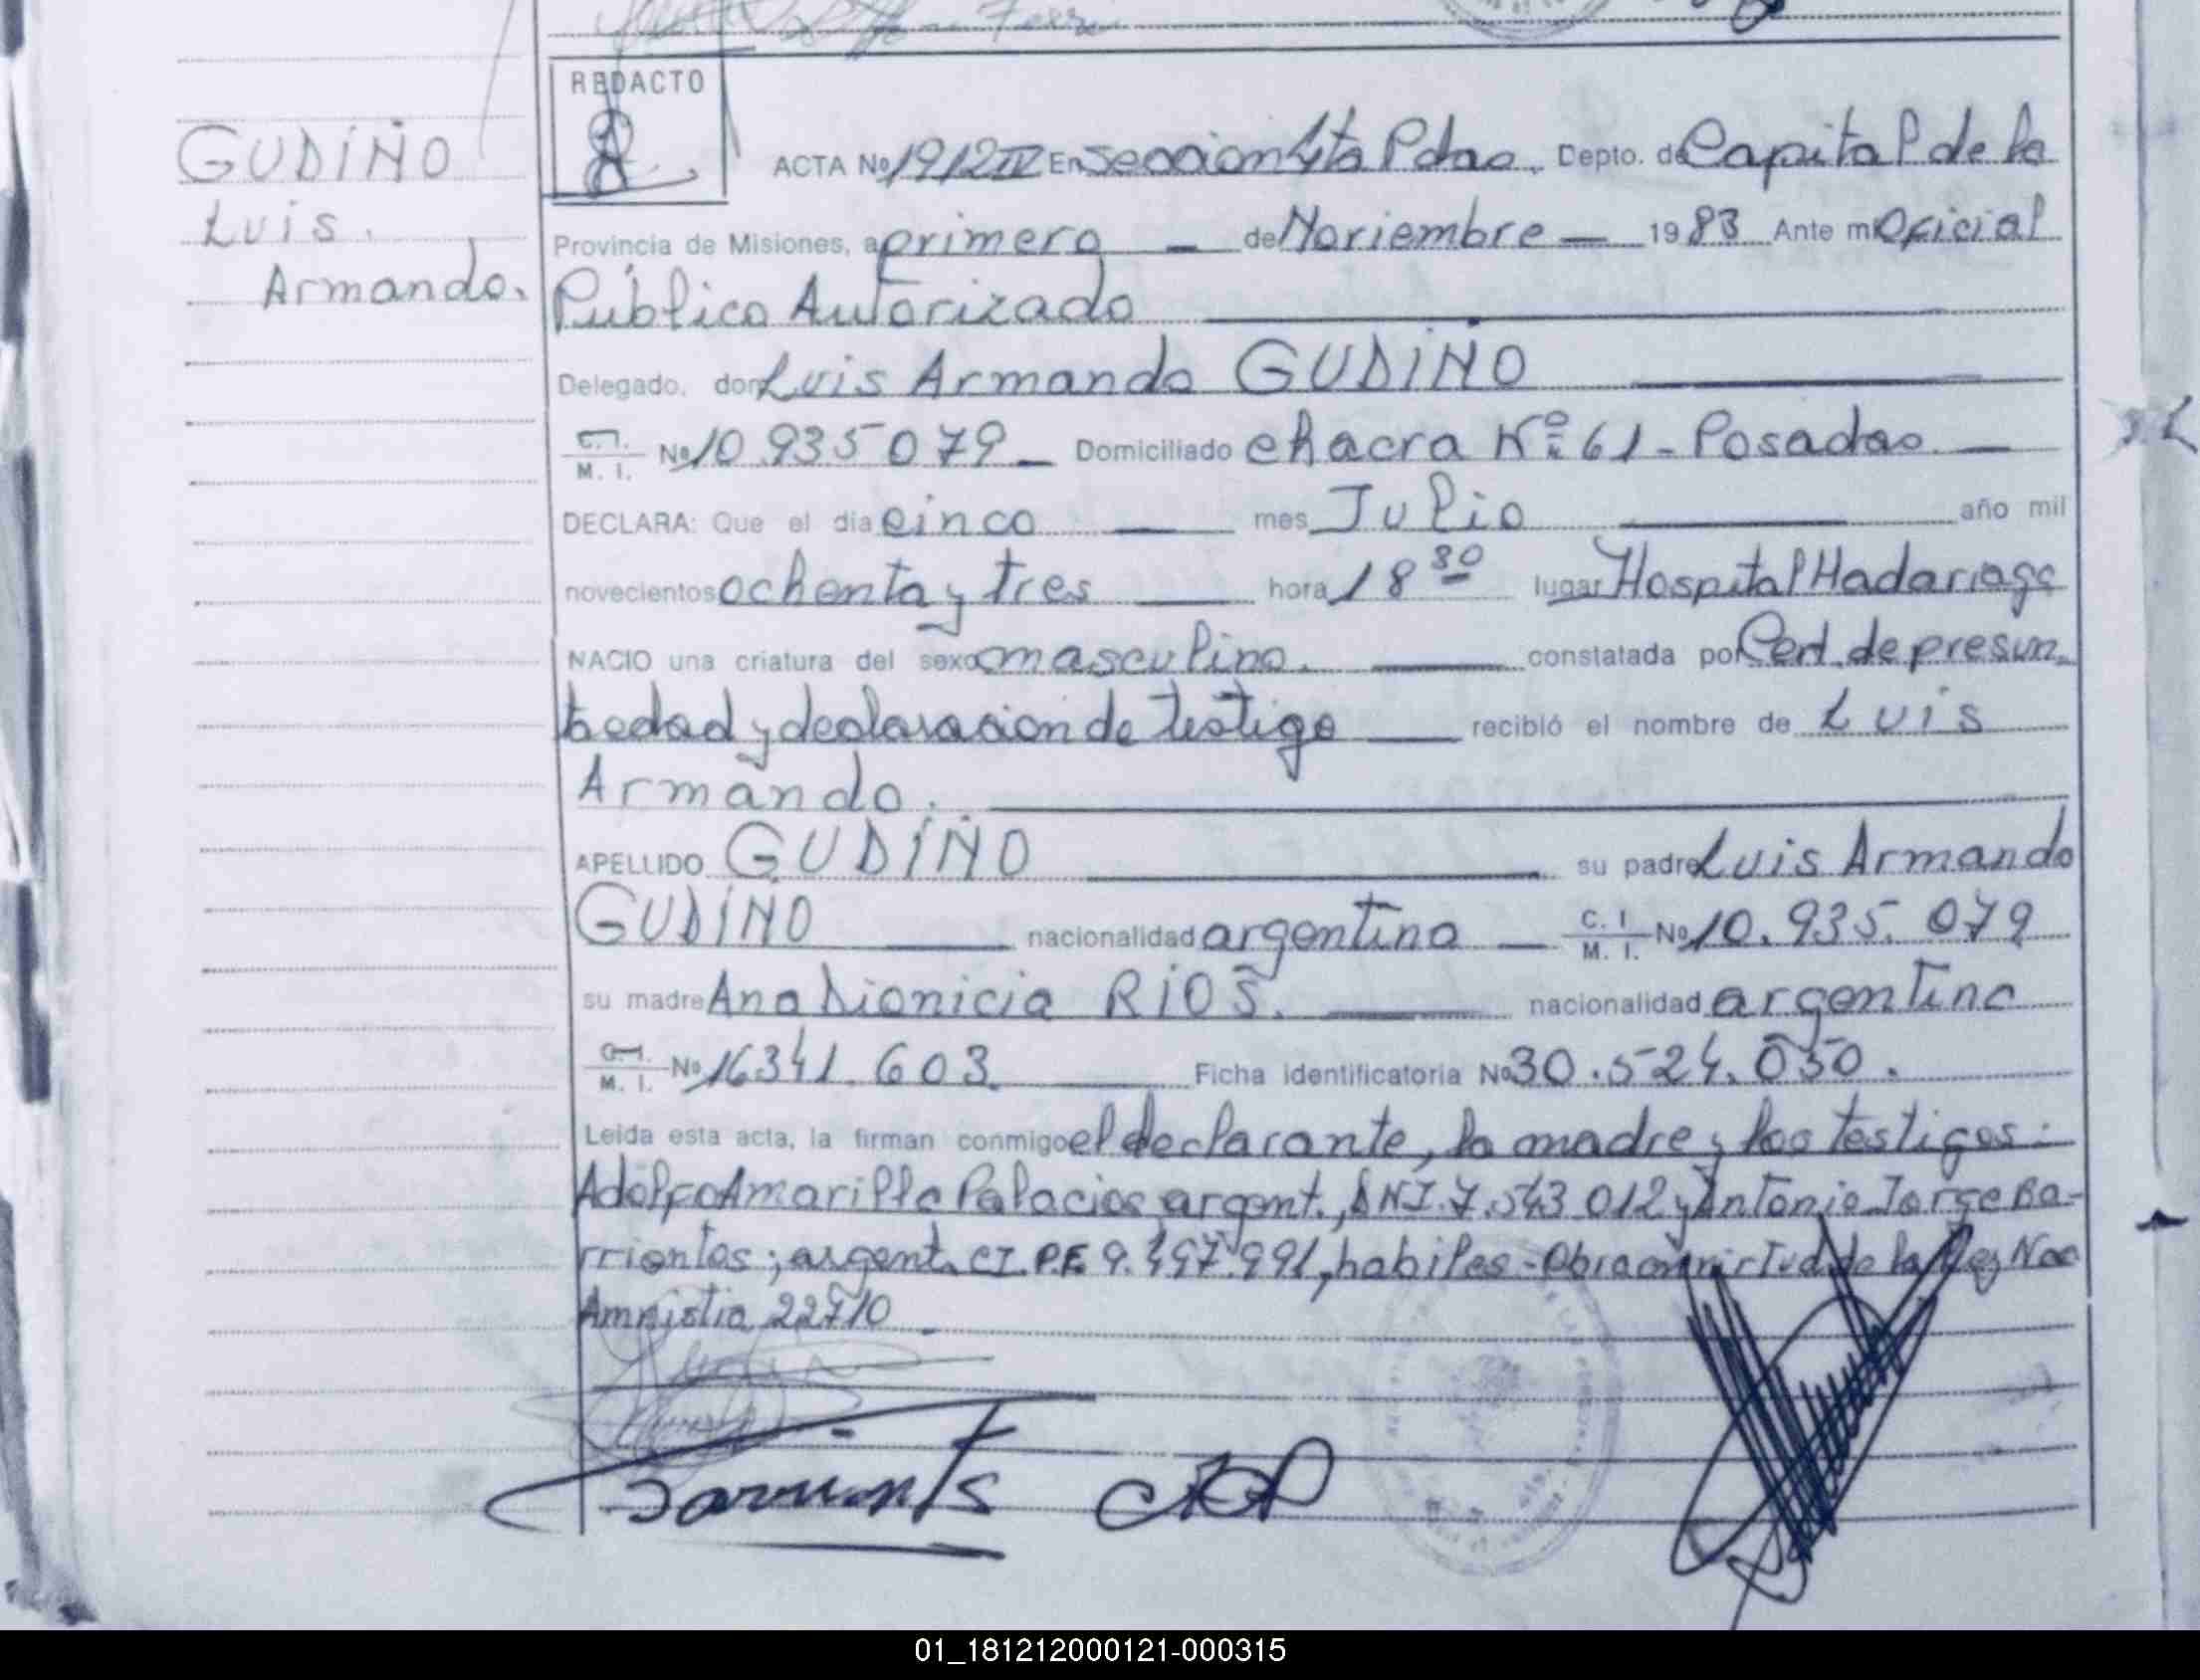 REDACTO
GUDIÑO
Luis.
Armando.
ACTA Nº 1912 IV En seccion 4ta Pdas. Depto. de Capital de la
Provincia de Misiones, a primero - de Noviembre — 1983 Ante mi Oficial
Público Autorizado
Delegado, don Luis Armando GUDIÑO
C. I. M. I. Nº 10.935.079 - Domiciliado chacra Nº 61 - Posadas. —
DECLARA: Que el día cinco — mes Julio — año mil
novecientos ochenta y tres — hora 18 30 lugar Hospital Madariaga
NACIO una criatura del sexo masculino. — constatada por Cert. de presun
ta edad y declaracion de testigo — recibló el nombre de Luis
Armando.
APELLIDO GUDIÑO — su padre Luis Armando
GUDIÑO — nacionalidad argentino — C. I. M. I. Nº 10.935.079
su madre Ana Dionicia RIOS. — nacionalidad argentina
C. I. M. I. Nº 16341.603 — Ficha identificatoria Nº 30.524.050.
Leida esta acta, la firman conmigo el declarante, la madre y los testigos:
Adolfo Amarilla Palacios, argent., DNI. 7.543.012 y Antonio Jorge Ba-
rrientos; argent. CI. P.F. 9.497.991, habiles - Obra en virtud de la Ley Nac
Amnistia 22710
Barrients
01_181212000121-000315